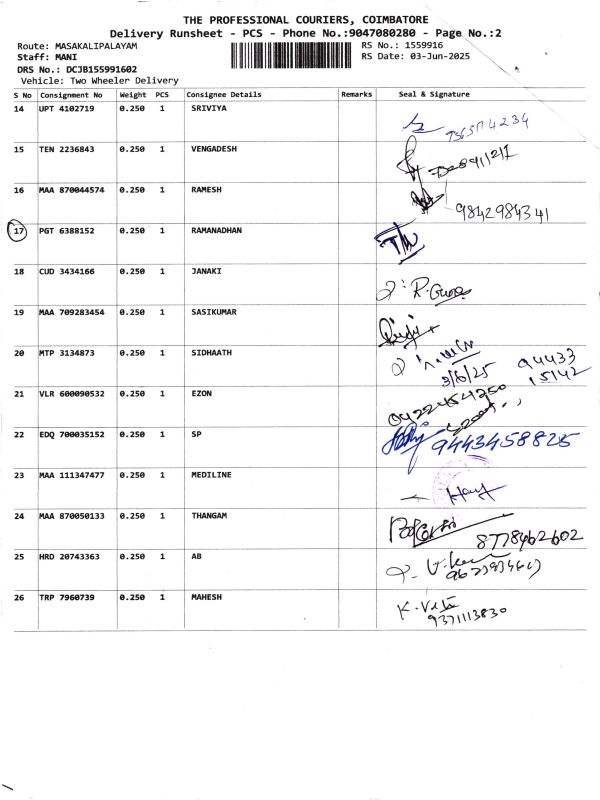 THE PROFESSIONAL COURIERS, COIMBATORE
Delivery Runsheet - PCS - Phone No.:9047080280 - Page No.:2
Route: MASAKALIPALAYAM
Staff: MANI
DRS No.: DCJB155991602
Vehicle: Two Wheeler Delivery
RS No.: 1559916
RS Date: 03-Jun-2025
S No Consignment No Weight PCS Consignee Details Remarks Seal & Signature
14 UPT 4102719 0.250 1 SRIVIYA
15 TEN 2236843 0.250 1 VENGADESH
16 MAA 870044574 0.250 1 RAMESH 9842984341
17 PGT 6388152 0.250 1 RAMANADHAN
18 CUD 3434166 0.250 1 JANAKI
19 MAA 709283454 0.250 1 SASIKUMAR
20 MTP 3134873 0.250 1 SIDHAATH 3/6/25 94433 15142
21 VLR 600090532 0.250 1 EZON 0422 454350
22 EDQ 700035152 0.250 1 SP 9443458825
23 MAA 111347477 0.250 1 MEDILINE
24 MAA 870050133 0.250 1 THANGAM 8778462602
25 HRD 20743363 0.250 1 AB
26 TRP 7960739 0.250 1 MAHESH 9371113830